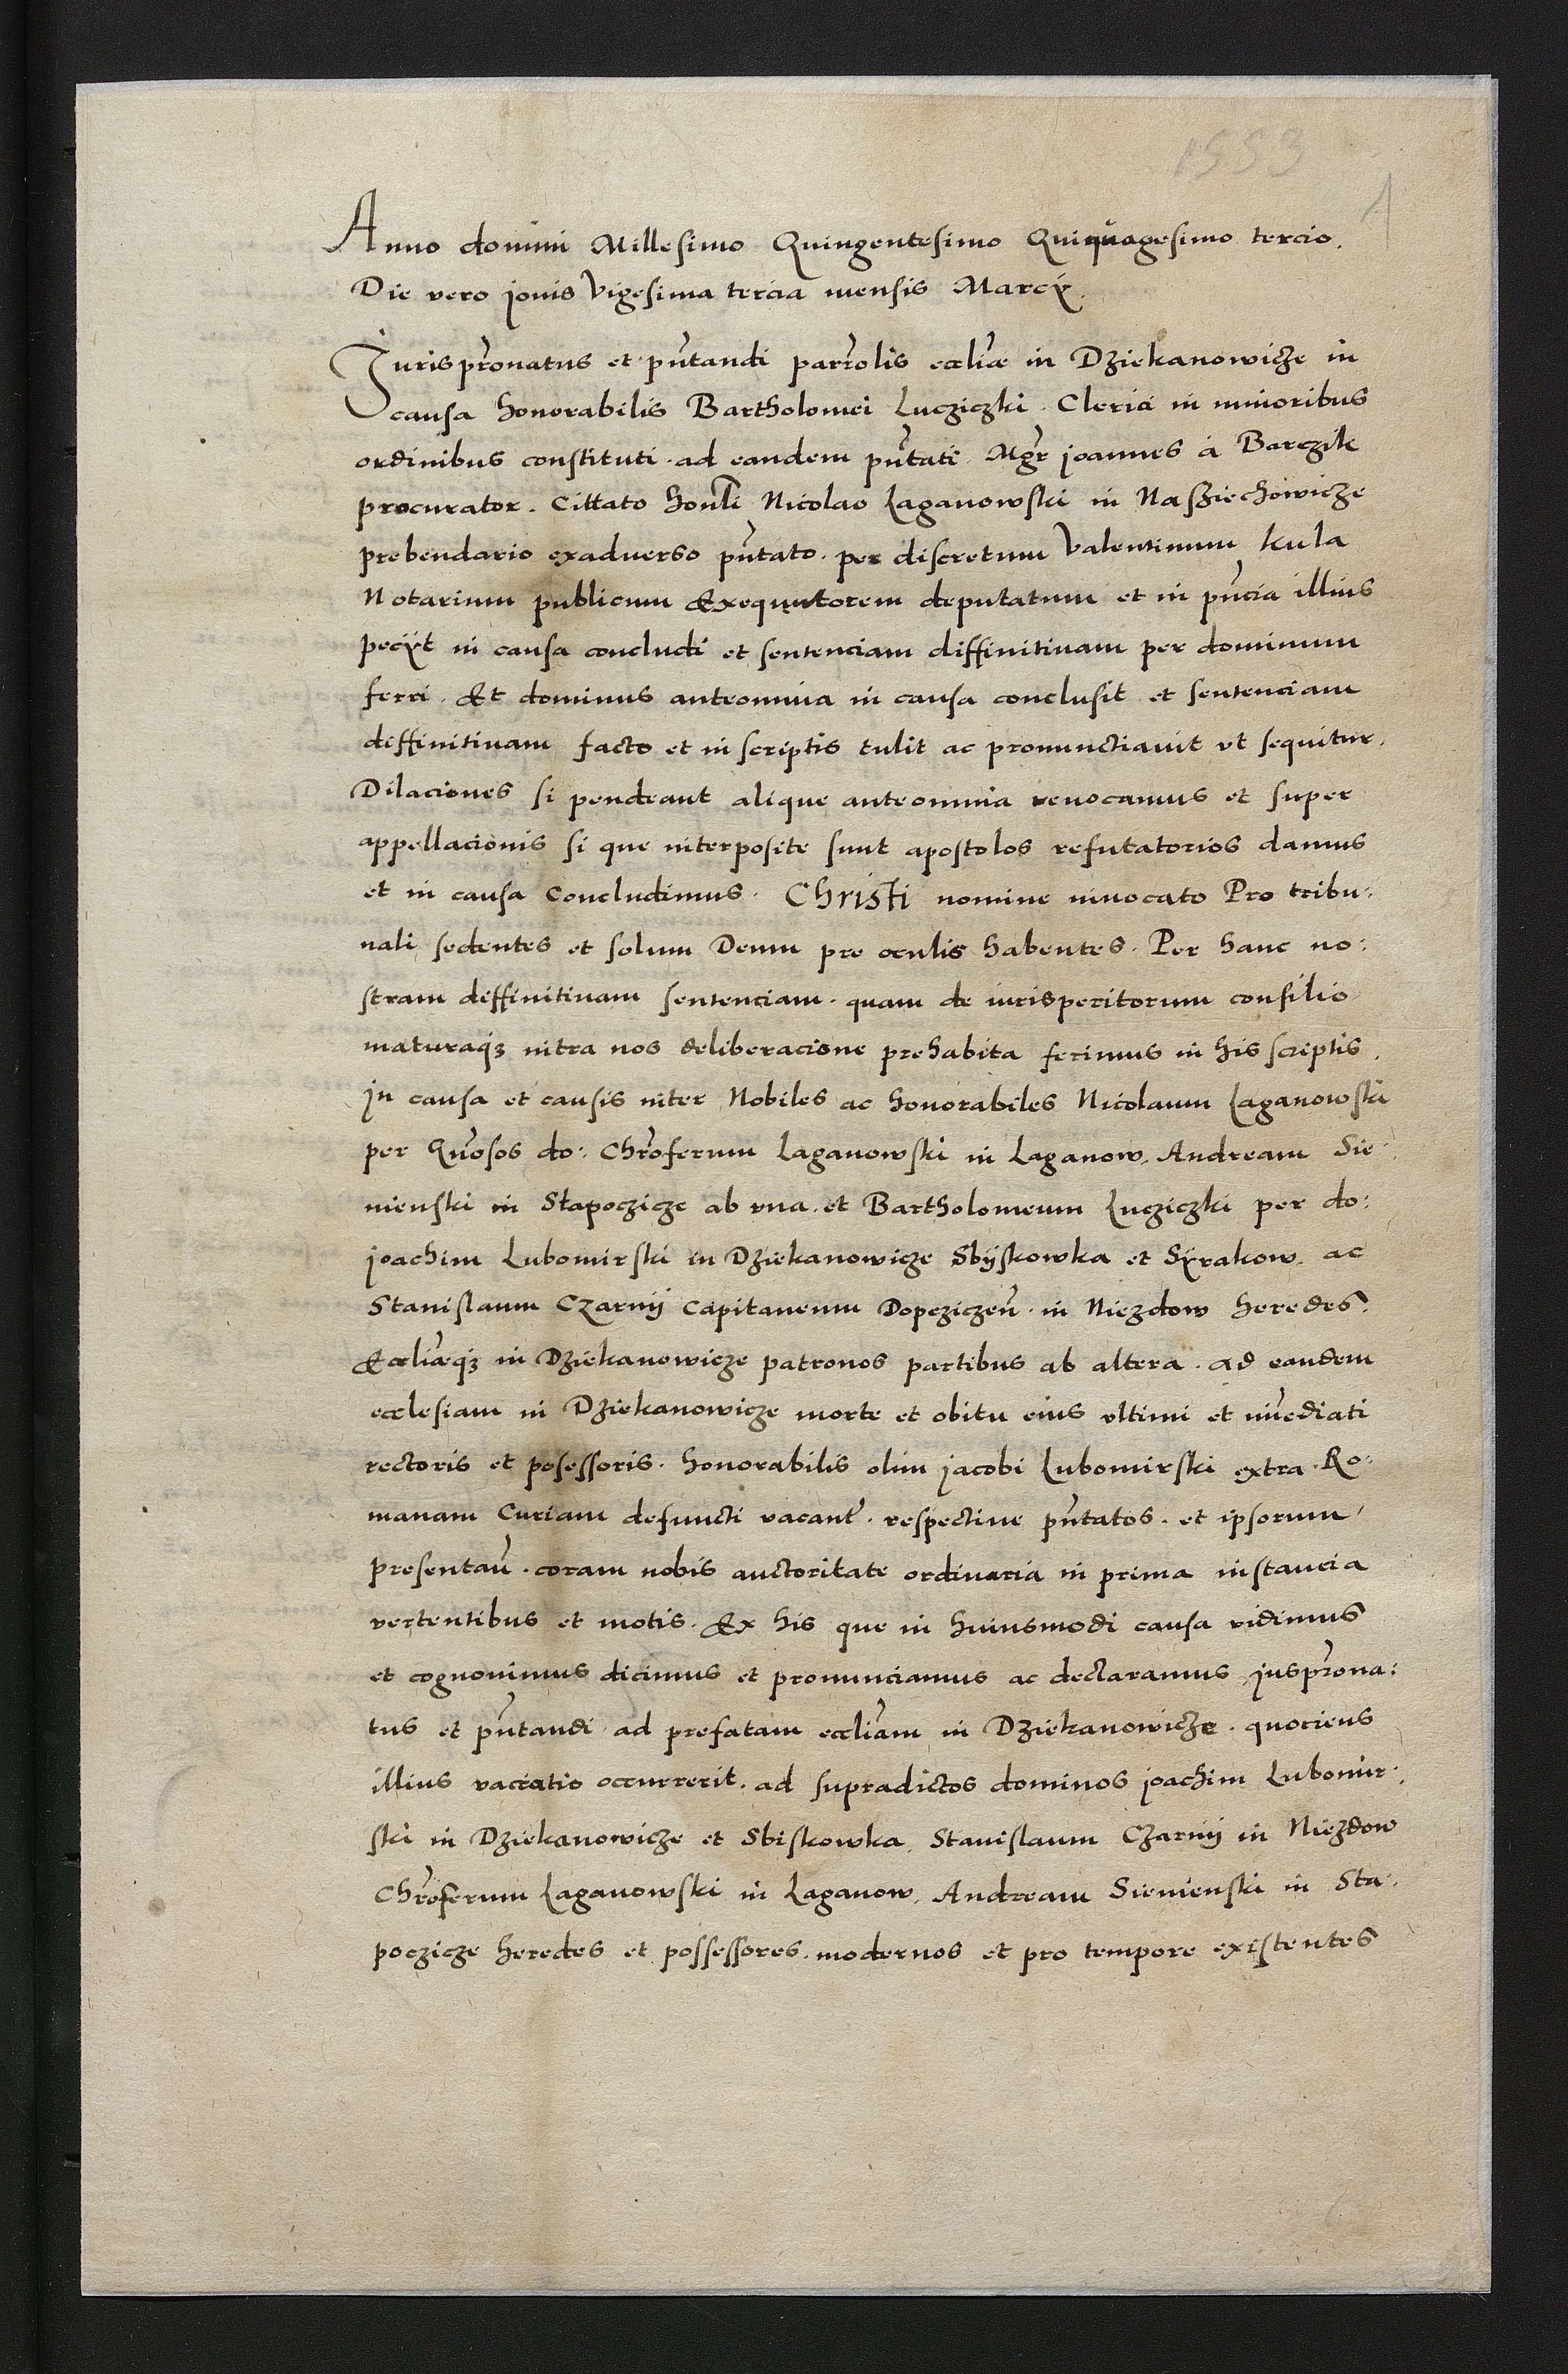 1553
1
Anno domini Millesimo Quingentesimo Quiquagesimo tercio.
Die vero jovis Vigesima tercia mensis Marcÿ.
Juris pr̃onatus et pñtandi parr̃olis eccliæ in Dziekanowicze in
causa honorabilis Bartholomei Lucziczki. Clerici in minoribus
ordinibus constituti. ad eandem pñtati. Mgr̃ joannes á Barczik
procurator. Cittato honl̃i Nicolao Laganowski in Nasziechowicze
prebendario exadverso pñtato. per discretum Valentinum kula
Notarium publicum Exequutorem deputatum et in pñcia illius
pecÿt in causa concludi et sentenciam diffinitivam per dominum
ferri. Et dominus anteomnia in causa conclusit et sentenciam
diffinitivam facto et in scriptis tulit ac pronunctiavit vt sequitur.
Dilaciones si pendeant alique anteomnia revocamus et super
appellacionis si que interposite sunt apostolos refutatorios damus
et in causa Concludimus. Christi nomine invocato Pro tribu:
nali sedentes et solum Deum pre oculis habentes. Per hanc no:
stram diffinitivam sentenciam. quam de iurisperitorum consilio
maturaq₃ intra nos deliberacione prehabita ferimus in his scriptis.
jn causa et causis inter Nobiles ac honorabiles Nicolaum Laganowski
per Gñosos do: Chr̃oferum Laganowski in Laganow. Andream Sie:
mienski in Stapoczicze ab vna. et Bartholomeum Lucziczki per do:
joachim Lubomirski in Dziekanowicze Sbÿskowka et Sÿrakow. ac
Stanislaum Czarnÿ Capitaneum Dopcziczeñ. in Niezdow heredes.
Eccliæq₃ in Dziekanowicze patronos partibus ab altera. ad eandem
ecclesiam in Dziekanowicze morte et obitu eius vltimi et im̃ediati
rectoris et posessoris. honorabilis olim jacobi Lubomirski extra Ro:
manam Curiam defuncti vacant̃. respective pñtatos. et ipsorum
presentañ. coram nobis auctoritate ordinaria in prima instancia
vertentibus et motis. Ex his que in huiusmodi causa vidimus
et cognovimus dicimus et pronunciamus ac declaramus juspr̃ona:
tus et pñtandi ad prefatam eccliãm in Dziekanowicze. quociens
illius vacatio occurrerit. ad supradictos dominos joachim Lubomir:
ski in Dziekanowicze et Sbiskowka. Stanislaum Czarnÿ in Niezdow
Chr̃oferum Laganowski in Laganow. Andream Siemienski in Sta:
poczicze heredes et possessores. modernos et pro tempore existentes